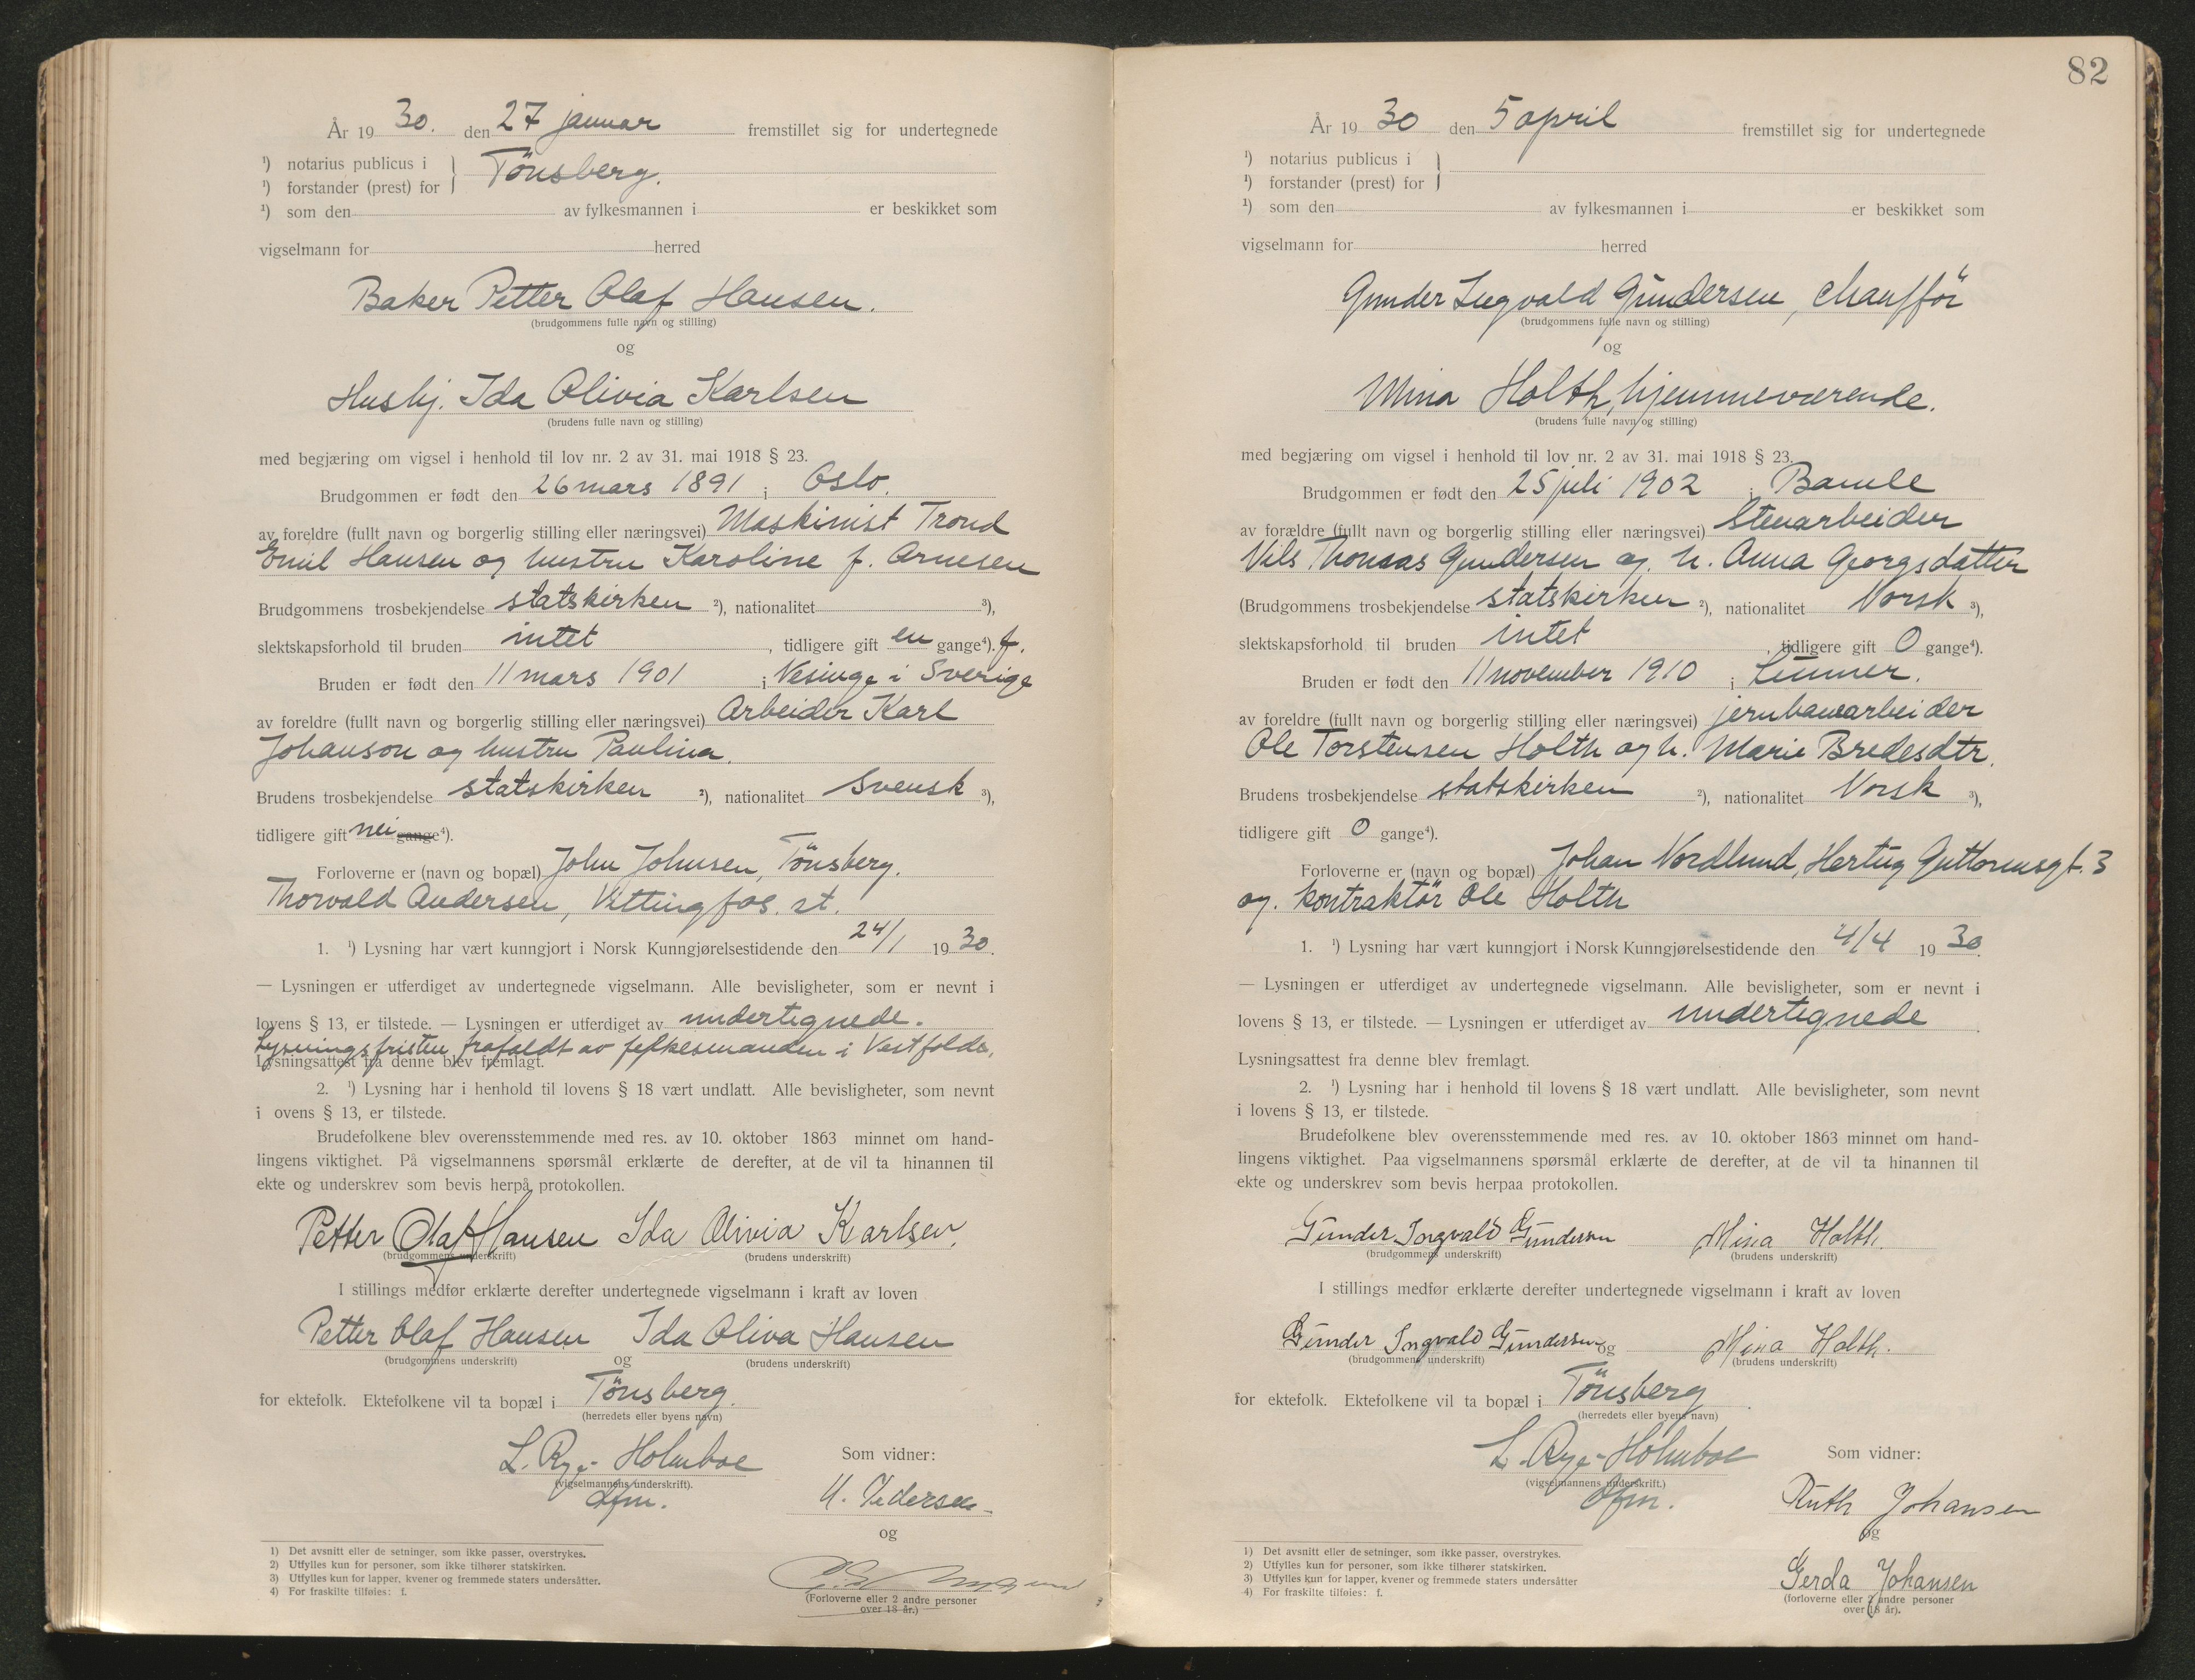 År 19 30. den 27 januar fremstillet sig for undertegnede
¹) notarius publicus i
¹) forstander (prest) for } Tönsberg.
¹) som den av fylkesmannen i er beskikket som
vigselmann for herred
Baker Petter Olaf Hansen.
(brudgommens fulle navn og stilling)
og
Hushj. Ida Olivia Karlsen
(brudens fulle navn og stilling)
med begjæring om vigsel i henhold til lov nr. 2 av 31. mai 1918 § 23.
Brudgommen er født den 26 mars 1891 i Oslo.
av foreldre (fullt navn og borgerlig stilling eller næringsvei) Maskinist Trond
Emil Hansen og hustru Karoline f. Arnesen
Brudgommens trosbekjendelse statskirken ²), nationalitet ³),
slektskapsforhold til bruden intet, tidligere gift en gange⁴). f.
Bruden er født den 11 mars 1901 i Vesinge i Sverige
av foreldre (fullt navn og borgerlig stilling eller næringsvei) Arbeider Karl
Johanson og hustru Paulina.
Brudens trosbekjendelse statskirken ²), nationalitet Svensk ³),
tidligere gift nei gange⁴).
Forloverne er (navn og bopæl) John Johnsen, Tönsberg.
Thorvald Andersen, Vittingfos. st.
1. ¹) Lysning har vært kunngjort i Norsk Kunngjørelsestidende den 24/1 1930.
— Lysningen er utferdiget av undertegnede vigselmann. Alle bevisligheter, som er nevnt i
lovens § 13, er tilstede. — Lysningen er utferdiget av undertegnede.
Lysningsfristen frafaldt av fylkesmanden i Vestfold.
Lysningsattest fra denne blev fremlagt.
2. ¹) Lysning har i henhold til lovens § 18 vært undlatt. Alle bevisligheter, som nevnt
i ovens § 13, er tilstede.
Brudefolkene blev overensstemmende med res. av 10. oktober 1863 minnet om hand-
lingens viktighet. På vigselmannens spørsmål erklærte de derefter, at de vil ta hinannen til
ekte og underskrev som bevis herpå protokollen.
Petter Olaf Hansen Ida Olivia Karlsen.
(brudgommens underskrift) (brudens underskrift)
I stillings medfør erklærte derefter undertegnede vigselmann i kraft av loven
Petter Olaf Hansen og Ida Oliva Hansen
(brudgommens underskrift) (brudens underskrift)
for ektefolk. Ektefolkene vil ta bopæl i Tönsberg.
(herredets eller byens navn)
L. Rye-Holmboe
(vigselmannens underskrift).
dfm.
Som vidner:
U. Pedersen
og
(Forloverne eller 2 andre personer
over 18 år.)
1) Det avsnitt eller de setninger, som ikke passer, overstrykes.
2) Utfylles kun for personer, som ikke tilhører statskirken.
3) Utfylles kun for lapper, kvener og fremmede staters undersåtter.
4) For fraskilte tilføies: f.
82
År 19 30 den 5 april fremstillet sig for undertegnede
¹) notarius publicus i
¹) forstander (prest) for }
¹) som den av fylkesmannen i er beskikket som
vigselmann for herred
Gunder Ingvald Gundersen, chaufför
(brudgommens fulle navn og stilling)
og
Mina Holth, hjemmeværende.
(brudens fulle navn og stilling)
med begjæring om vigsel i henhold til lov nr. 2 av 31. mai 1918 § 23.
Brudgommen er født den 25 juli 1902 i Bamle
av forældre (fullt navn og borgerlig stilling eller næringsvei) Stenarbeider
Nils Thomas Gundersen og h. Anna Georgsdatter
(Brudgommens trosbekjendelse statskirken ²), nationalitet Norsk ³),
slektskapsforhold til bruden intet, tidligere gift 0 gange⁴).
Bruden er født den 11 november 1910 i Lunner.
av foreldre (fullt navn og borgerlig stilling eller næringsvei) jernbanearbeider
Ole Torstensen Holth og h. Marie Bredesdtr.
Brudens trosbekjendelse statskirken ²), nationalitet Norsk ³),
tidligere gift 0 gange⁴).
Forloverne er (navn og bopæl) Johan Nordlund, Hertug Guttormsgt. 3
og. kontraktör Ole Holth
1. ¹) Lysning har vært kunngjort i Norsk Kunngjørelsestidende den 4/4 1930.
— Lysningen er utferdiget av undertegnede vigselmann. Alle bevisligheter, som er nevnt i
lovens § 13, er tilstede. — Lysningen er utferdiget av undertegnede.
Lysningsattest fra denne blev fremlagt.
2. ¹) Lysning har i henhold til lovens § 18 vært undlatt. Alle bevisligheter, som nevnt
i lovens § 13, er tilstede.
Brudefolkene blev overensstemmende med res. av 10. oktober 1863 minnet om hand-
lingens viktighet. Paa vigselmannens spørsmål erklærte de derefter, at de vil ta hinannen til
ekte og underskrev som bevis herpaa protokollen.
Gunder Ingvald Gundersen Mina Holth.
(brudgommens underskrift) (brudens underskrift)
I stillings medfør erklærte derefter undertegnede vigselmann i kraft av loven
Gunder Ingvald Gundersen og Mina Holth.
(brudgommens underskrift) (brudens underskrift)
for ektefolk. Ektefolkene vil ta bopæl i Tönsberg.
(herredets eller byens navn)
L. Rye-Holmboe
(vigselmannens underskrift.)
dfm.
Som vidner:
Ruth Johansen
og
Gerda Johansen
(forloverne eller 2 andre personer
over 18 år).
1) Det avsnitt eller de setninger, som ikke passer, overstrykes.
2) Utfylles kun for personer, som ikke tilhører statskirken.
3) Utfylles kun for lapper, kvener og fremmede staters undersåtter
4) For fraskilte tilføies: f.